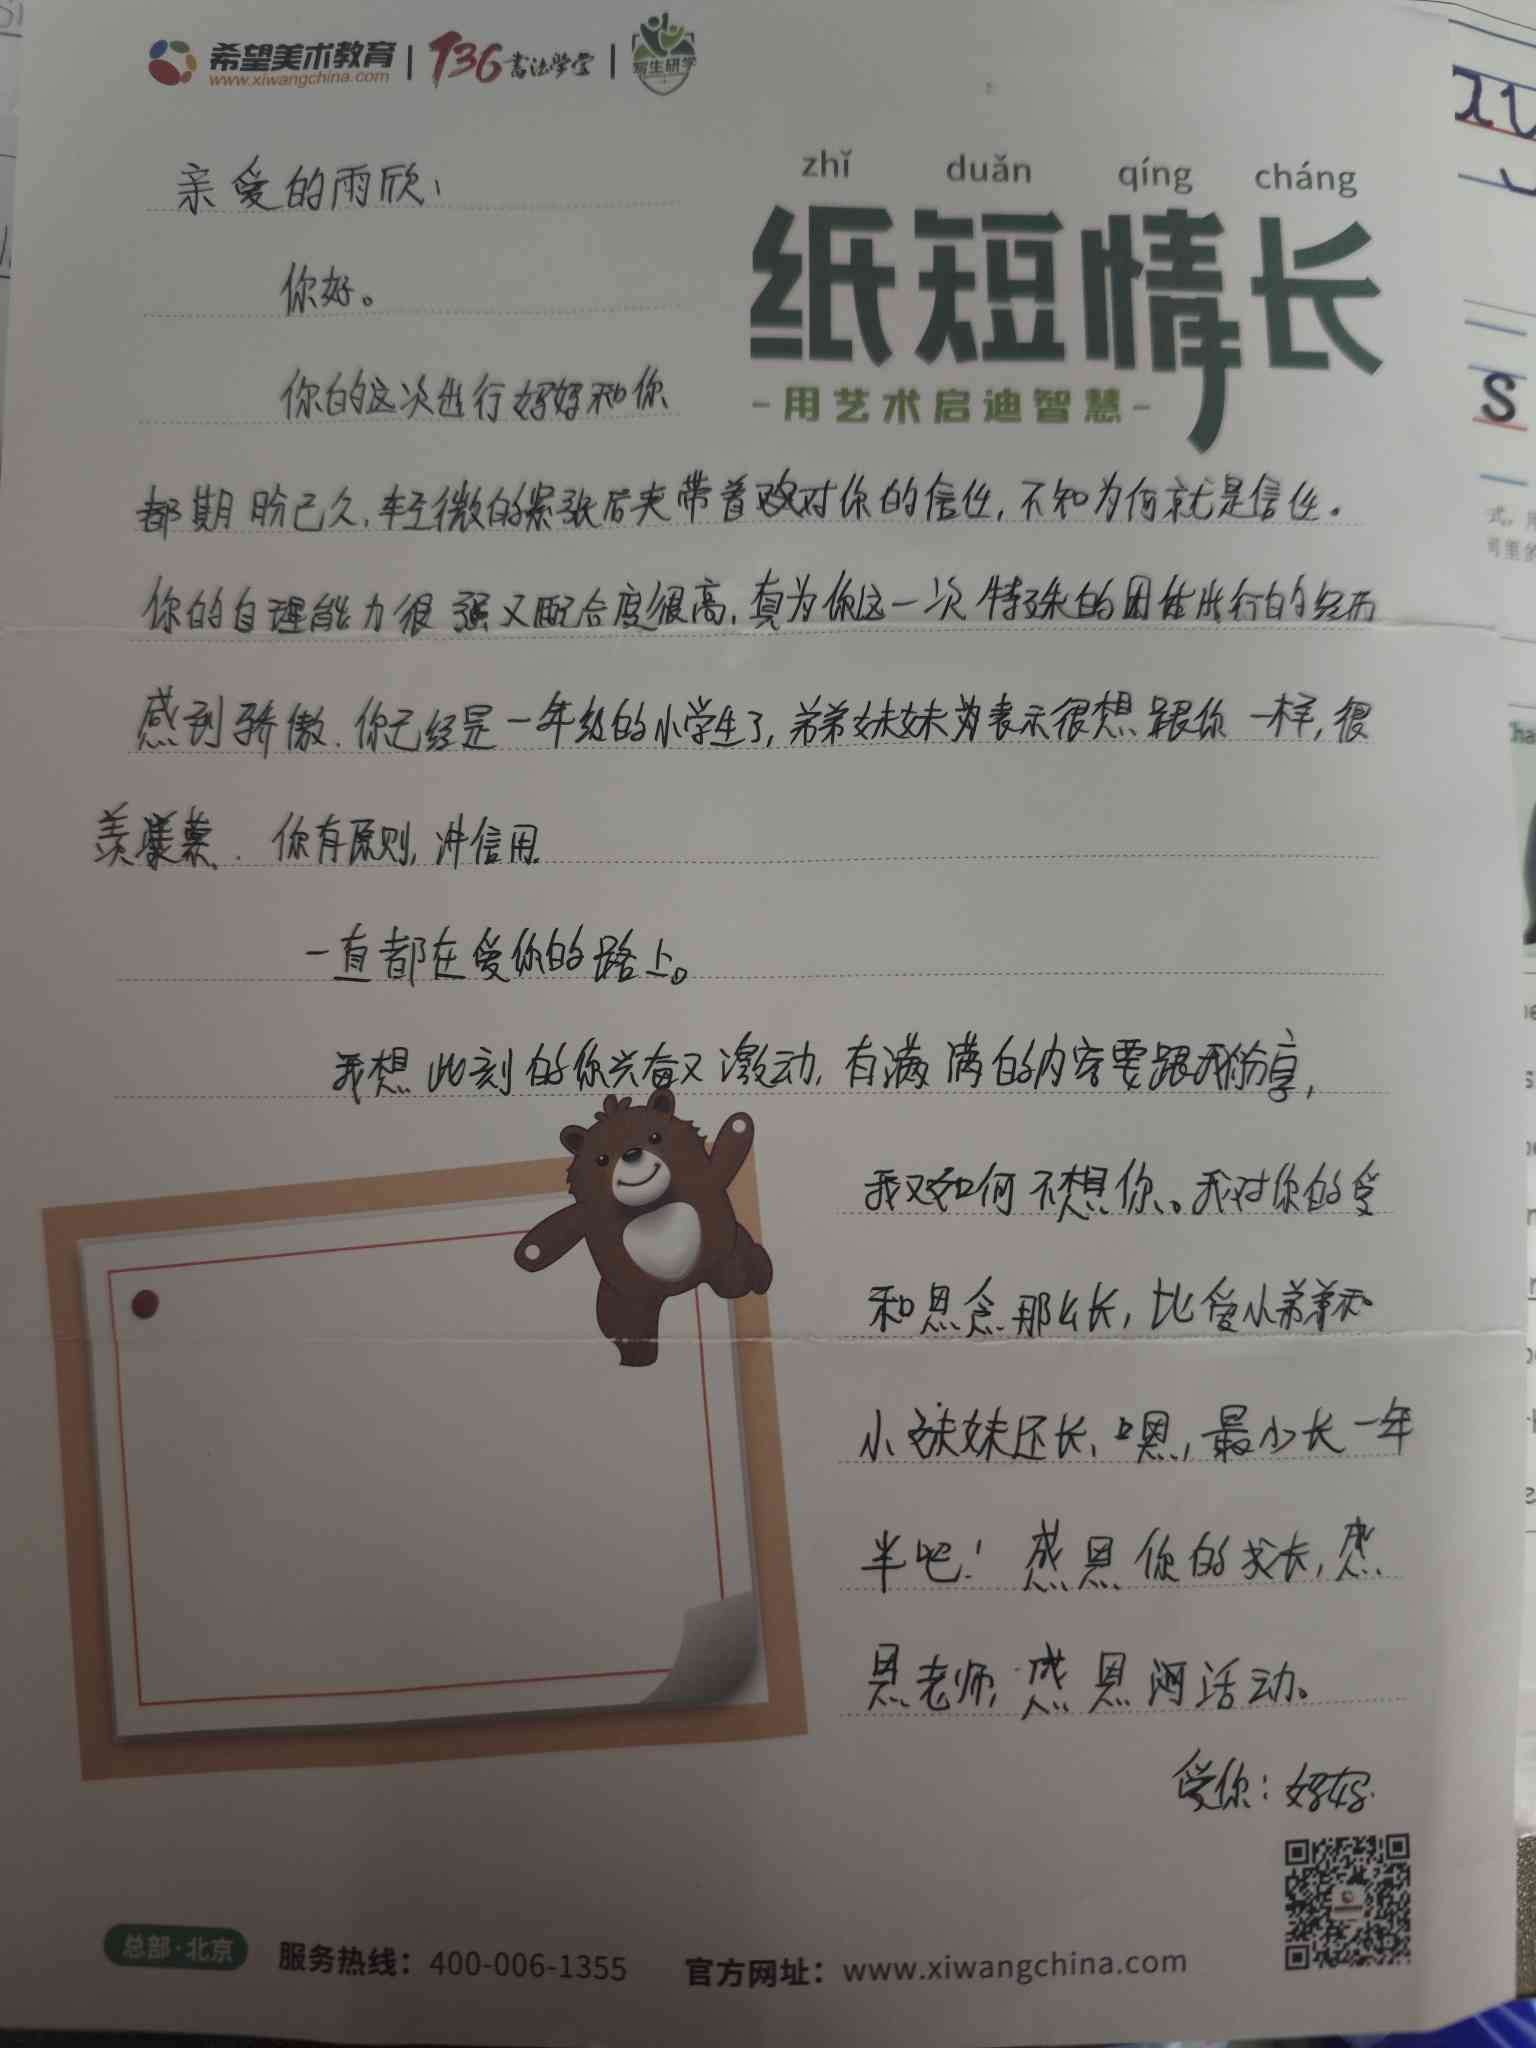 希望美术教育 | 136书法学堂 | 写生研学
www.xiwangchina.com
zhǐ duǎn qíng cháng
纸短情长
-用艺术启迪智慧-
亲爱的雨欣：
你好。
你的这次出行妈妈和你
都期盼已久,轻微的紧张后夹带着对你的信任,不知为何就是信任。
你的自理能力很强又配合度很高,真为你这一次特殊的团体出行的经历
感到骄傲.你已经是一年级的小学生了,弟弟妹妹表示很想跟你一样,很
羡慕.你有原则,讲信用.
一直都在爱你的路上。
我想此刻的你兴奋又激动,有满满的内容要跟我分享,
我又如何不想你。我对你的爱
和思念那么长,比爱小弟弟和
小妹妹还长,嗯,最少长一年
半吧!感恩你的成长,感
恩老师,感恩活动。
爱你：妈妈.
总部·北京 服务热线：400-006-1355 官方网址：www.xiwangchina.com
S